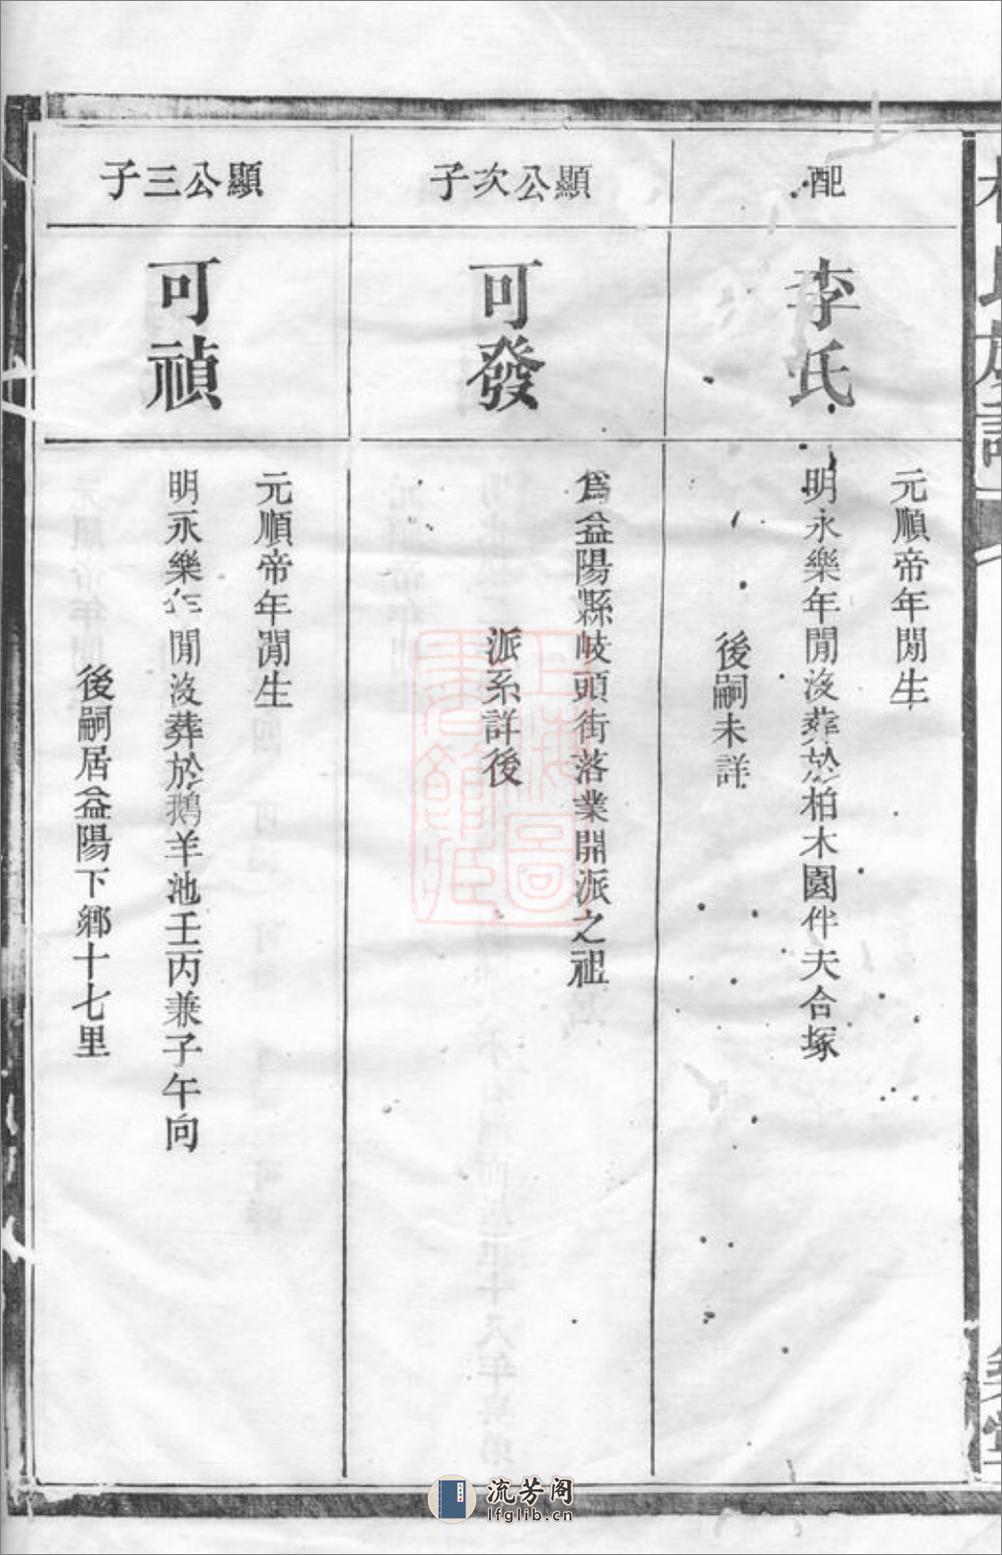 配
李氏
元順帝年間生
明永樂年間沒葬於柏木園伴夫合塚
後嗣未詳
顯公次子
可發
為益陽縣岐頭街落業開派之祖
派系詳後
顯公三子
可禎
元順帝年間生
明永樂年間沒葬於鵝羊池壬丙兼子午向
後嗣居益陽下鄉十七里
上海圖書館藏
流芳阁
lfglib.cn